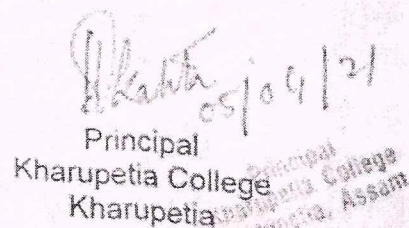 05/04/21
Principal
Kharupetia College
Kharupetia
Principal
Kharupetia College
Kharupetia, Assam